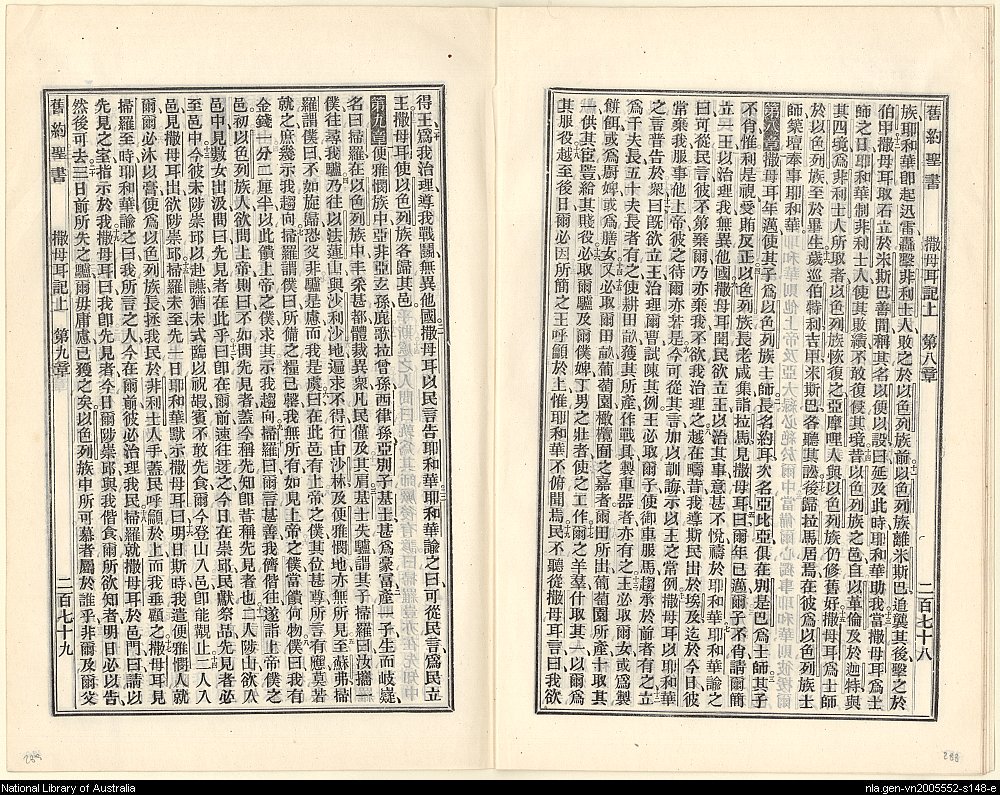 舊約聖書 撒母耳記上 第八章 二百七十八
族耶和華卽起迅雷轟擊非利士人敗之於以色列族前以色列族離米斯巴追襲其後擊之於
伯甲撒母耳取石立於米斯巴善間稱其名以便以設曰延及此時耶和華助我當撒母耳爲士
師之日耶和華制非利士人使其敗績不敢復侵其境昔以色列族之邑自以革倫及於迦特與
其四境爲非利士人所取者以色列族恢復之亞摩哩人與以色列族仍修舊好撒母耳爲士師
於以色列族至於畢生歲巡伯特利吉甲米斯巴各聽其訟後歸拉馬居焉在彼爲以色列族士
師築壇奉事耶和華
第八章撒母耳年邁使其子爲以色列族士師長名約耳次名亞比亞俱在別是巴爲士師其子
不肖惟利是視受賄反正以色列族長老咸集詣拉馬見撒母耳曰爾年已邁爾子不肖請爾簡
立一王以治理我無異他國撒母耳聞民欲立王以治其事意甚不悅禱於耶和華耶和華諭之
曰可從民言彼不第棄爾乃亦棄我不欲我治理之越在疇昔我導斯民出於埃及迄於今日彼
常棄我服事他上帝彼之待爾亦若是今可從其言加以訓誨示以王之常例撒母耳以耶和華
之言普告於衆曰旣欲立王治理爾曹試陳其例王必取爾子使御車服馬趨承於前者有之立
爲千夫長五十夫長者有之使耕田畝穫其所產作戰具製車器者亦有之王必取爾女或爲製
餅餌或爲廚婢或爲膳女又必取爾田畝葡萄園橄欖園之嘉者爾田所出葡萄園所產十取其
一供其宦豎給其賤役必取爾驢及爾僕婢丁男之壯者使之工作爾之羊羣什取其一以爲爲
其服役越至後日爾必因所簡之王呼籲於上惟耶和華不俯聞焉民不聽從撒母耳言曰我欲
舊約聖書 撒母耳記上 第九章 二百七十九
得王爲我治理導我戰鬬無異他國撒母耳以民言告耶和華耶和華諭之曰可從民言爲民立
王撒母耳使以色列族各歸其邑
第九章便雅憫族中亞非亞玄孫庇歌拉曾孫西律孫亞別子基士甚爲豪富產一子生而岐嶷
名曰掃羅在以色列族中丰采甚都體裁異衆凡民僅及其肩基士失驢謂其子掃羅曰汝攜一
僕往尋我驢乃往以法蓮山與沙利沙地遍求不得行由沙林及便雅憫地亦無所見至蘇弗掃
羅謂僕曰不如旋歸恐父非驢是慮而我是虞曰在此邑有上帝之僕其位甚尊所言有應莫若
就之庶幾示我趨向掃羅謂僕曰所備之糧已罄我無所有如見上帝之僕當饋何物僕曰我有
金錢一分二厘半以此饋上帝之僕求其示我趨向掃羅曰爾言甚善我儕偕往遂詣上帝僕之
邑初以色列族人欲問上帝則曰不如問先見者蓋今稱先知卽昔稱先見者也二人陟山欲入
邑中見數女出汲問曰先見者在此乎曰卽在爾前速往迓之今日在崇邱民獻祭品先見者必
至邑中今彼未陟崇邱以赴讌猶未式臨以祝嘏賓不敢先食爾今登山入邑卽能觀止二人入
邑見撒母耳出欲陟崇邱掃羅未至先一日耶和華默示撒母耳曰明日斯時我遣便雅憫人就
爾爾必沐以膏使爲以色列族長拯我民於非利士人手蓋民呼籲於上而我垂顧之撒母耳見
掃羅至時耶和華諭之曰我所言之人今在爾前彼必治理我民掃羅就撒母耳於邑門曰請以
先見之室指示於我撒母耳曰我卽先見者今日爾陟崇邱與我偕食爾所欲知者明日必以告
然後可去三日前所失之驢爾毋庸慮已獲之矣以色列族中所可慕者屬於誰乎非爾及爾父
288
National Library of Australia
nla.gen-vn2005552-s148-e